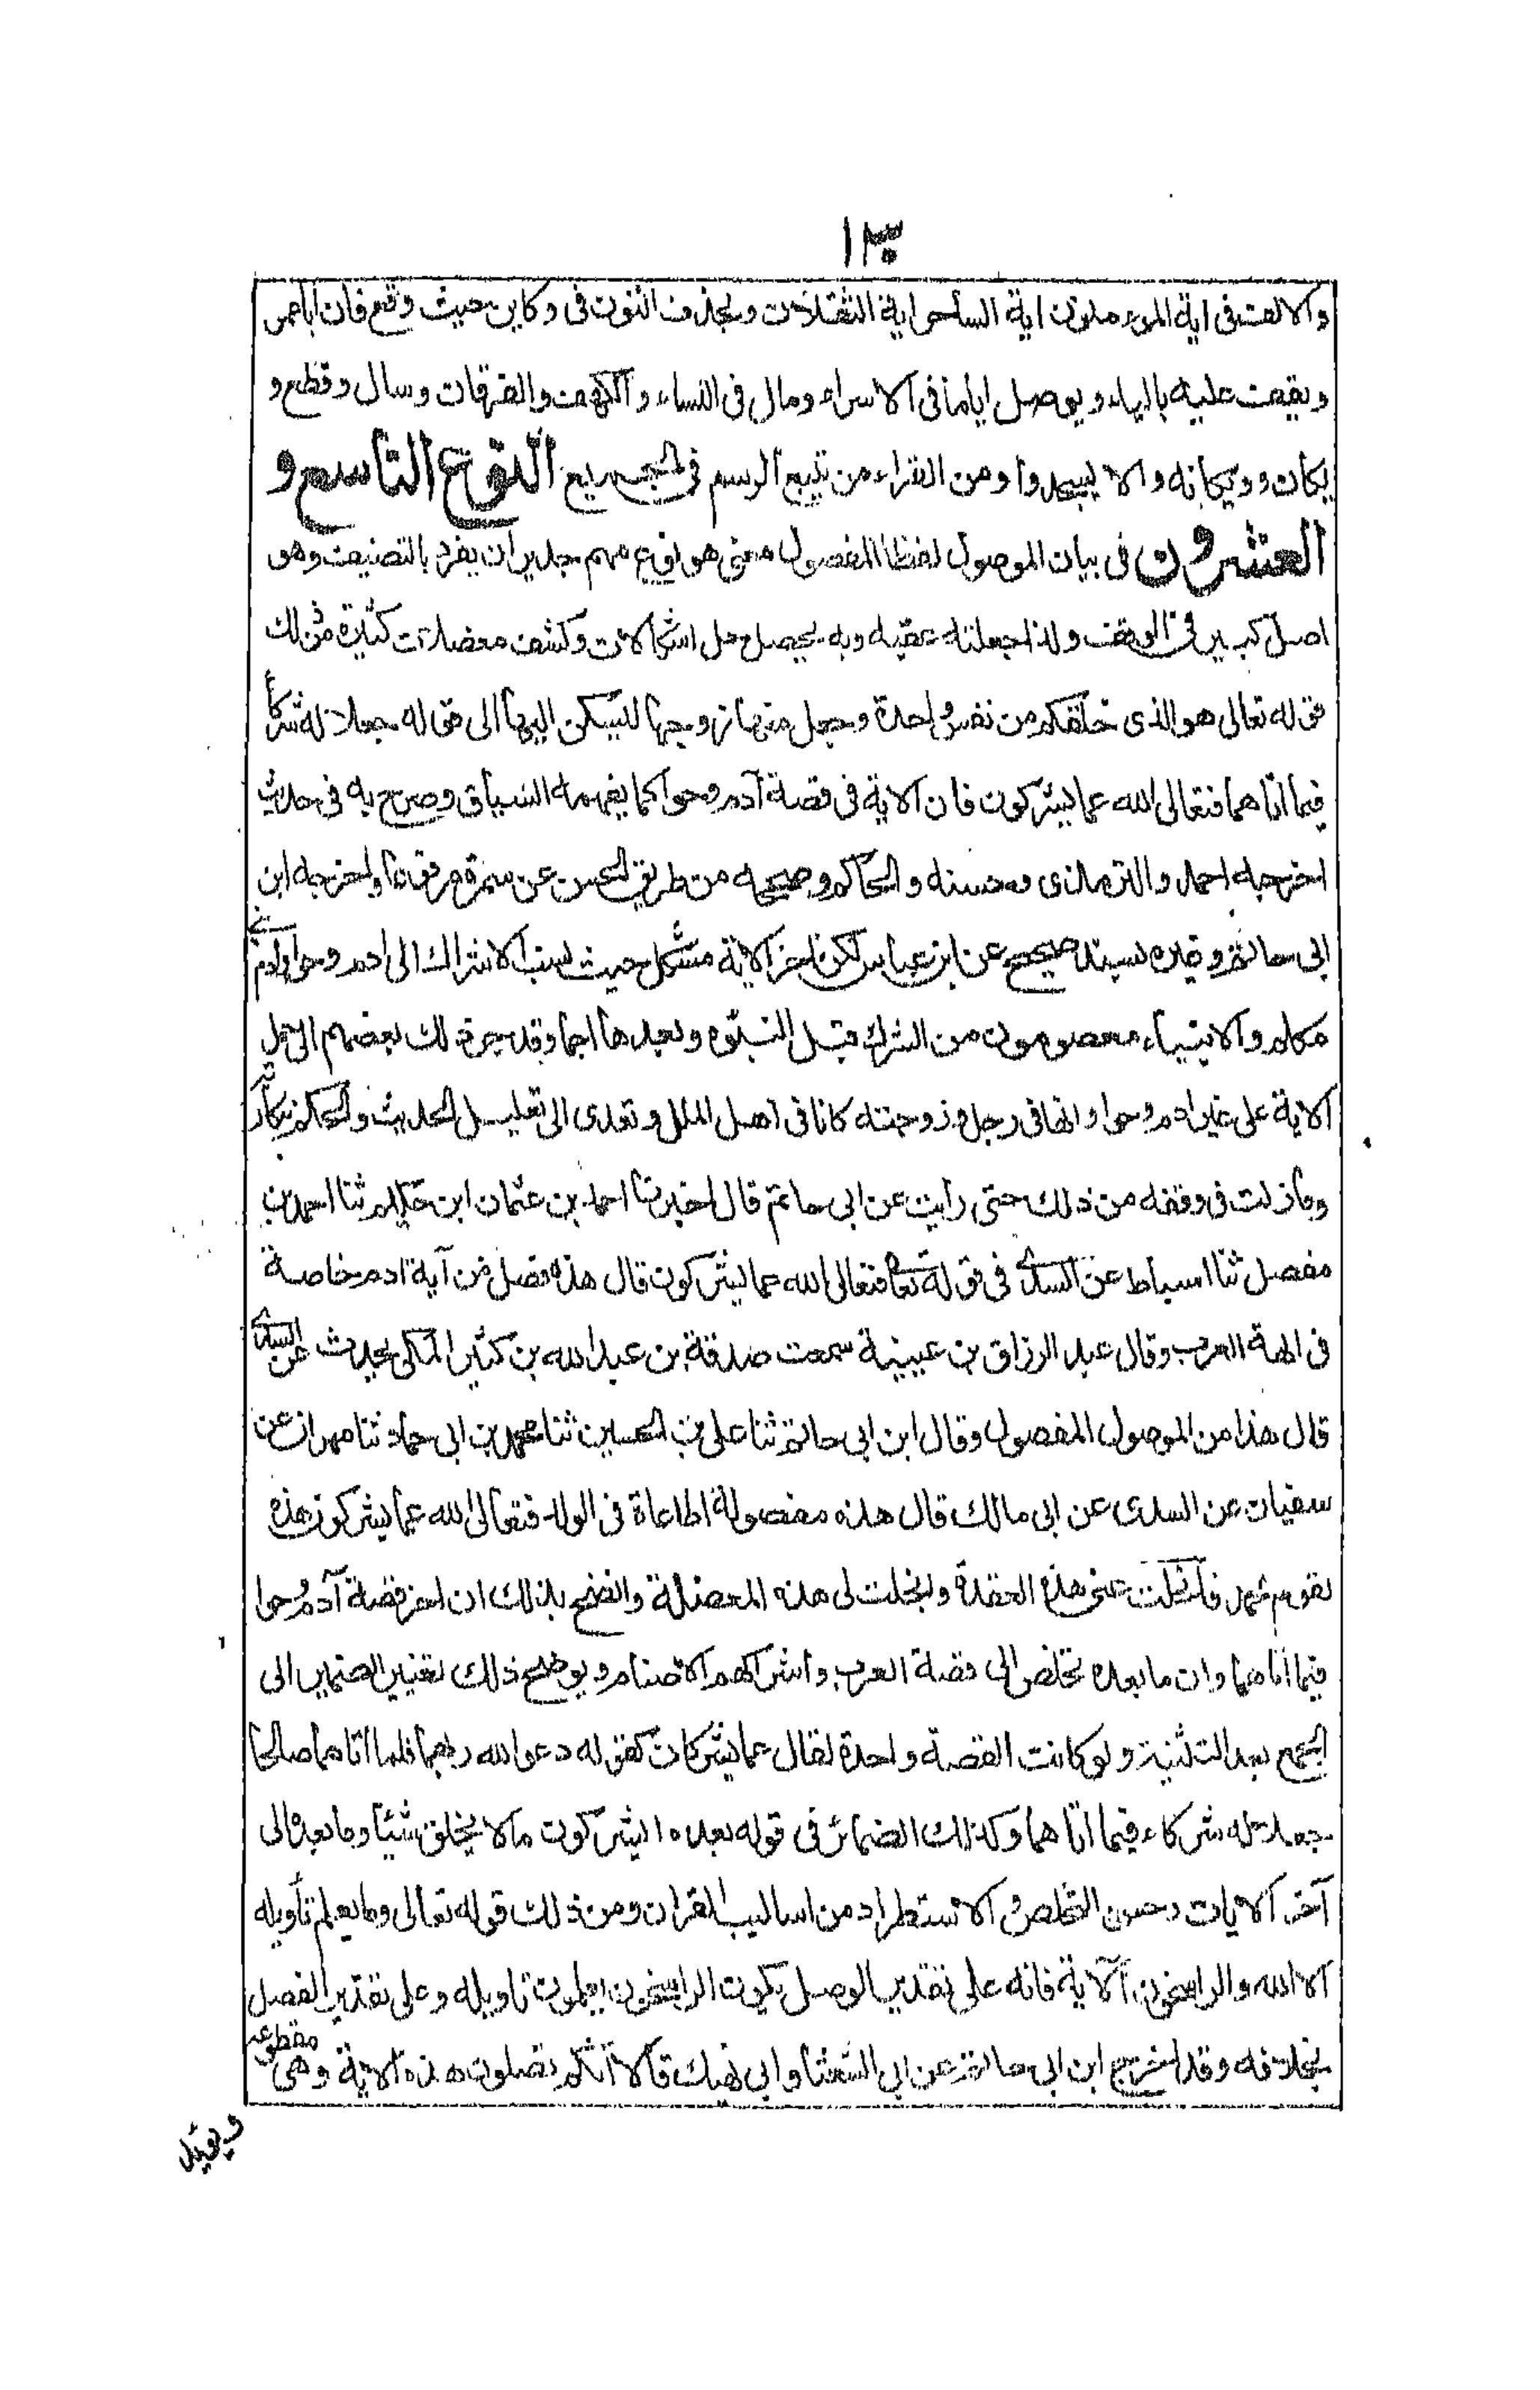 ١٣٠
والالف فى اية المؤمنون اية الساحر اية الثقلان ويحذف النون فى وكاين حيث وقع فان ابا عمر
ويقف عليه بالياء ويوصل اياما فى الاسراء ومال فى النساء والكهف والفرقان وسال وقطع و
يكان وويكانه والا يسجدوا ومن القراء من تتبع الرسم فى الجميع النوع التاسع و
العشرون فى بيان الموصول لفظا المفصول معنى هو نوع مهم جدير ان يفرد بالتصنيف وهو
اصل كبير فى الوقف ولذا جعلته عقبه وبه يحصل حل اشكالات وكشف معضلات كثيرة من ذلك
قوله تعالى هو الذى خلقكم من نفس واحدة وجعل منها زوجها ليسكن اليها الى قوله جعلا له شركاء
فيما اتاهما فتعالى الله عما يشركون فان الاية فى قصة آدم وحوا كما يفهمه السياق وصرح به فى حديث
اخرجه احمد والترمذى وحسنه والحاكم وصححه من طريق الحسن عن سمرة مرفوعا واخرجه ابن
ابى حاتم وغيره بسند صحيح عن ابن عباس لكن اخر الاية مشكل حيث نسب الاشراك الى ادم وحوا وادم نبى
مكلم والانبياء معصومون من الشرك قبل النبوة وبعدها اجماعا وقد جر ذلك بعضهم الى حمل
الاية على غير ادم وحوا وانها فى رجل وزوجته كانا فى اهل الملل وتعدى الى تعليل الحديث والحكم بنكارته
وما زلت فى وقفه من ذلك حتى رأيت عن ابى حاتم قال اخبرنا احمد بن عثمان ابن حكيم ثنا احمد بن
مفصل ثنا اسباط عن السدى فى قوله تعا فتعالى الله عما يشركون قال هذه فصل من آية ادم خاصة
فى الهة العرب وقال عبد الرزاق بن عيينة سمعت صدقة بن عبد الله بن كثير المكى يحدث عن السدى
قال هذا من الموصول المفصول وقال ابن ابى حاتم ثنا على بن الحسين ثنا محمد بن ابى حماد ثنا مهران عن
سفيان عن السدى عن ابى مالك قال هذه مفصولة اطاعاة فى الولد فتعالى الله عما يشركون هذه
لقوم محمد فانحلت عنى هذه العقدة وانجلت لى هذه المعضلة واتضح بذلك ان اخر قصة آدم وحوا
فيما اتاهما وان ما بعده تخلص الى قصة العرب واشراكهم الاصنام ويوضح ذلك تغيير الضمير الى
الجمع بعد التثنية ولو كانت القصة واحدة لقال عما يشركان كقوله دعوا الله ربهما فلما اتاهما صالحا
جعلا له شركاء فيما اتاهما وكذلك الضمائر فى قوله بعده ايشركون ما لا يخلق شيئا وما بعده الى
آخر الايات وحسن التخلص والاستطراد من اساليب القران ومن ذلك قوله تعالى وما يعلم تأويله
الا الله والراسخون الآية فانه على تقدير الوصل يكون الراسخون يعلمون تاويله وعلى تقدير الفصل
بخلافه وقد اخرج ابن ابى حاتم عن ابى الشعثا وابى نهيك قالا انكم تصلون هذه الاية وهى مقطوعه
ويؤيد